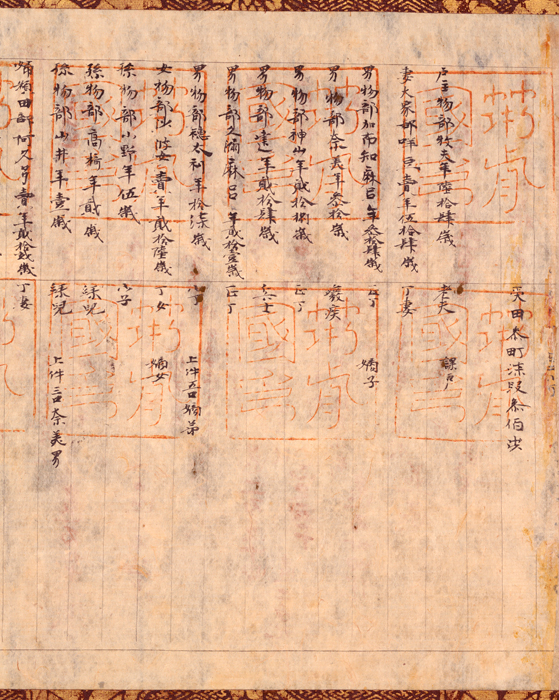 田町漆段叄伯
戸主物部牧夫年陸拾肆歳 老夫 課戸
妻大家部咩豆賣年伍拾肆歳 丁妻
男物部加布知麻呂年叄拾肆歳 正丁 嫡子
男物部奈美年叄拾歳 癈疾
男物部神山年貳拾捌歳 正丁
男物部建年貳拾肆歳 兵士
男物部久漏麻呂年貳拾壹歳 正丁
男物部穂太利年拾漆歳 小丁 上件五口嫡弟
女物部比波女賣年貳拾陸歳 丁女 嫡女
孫物部小野年伍歳 小子
孫物部高椅年貳歳 緑兒
孫物部山井年壹歳 緑兒 上件三口奈美男
婦額田部阿久賣年貳拾歳 丁妻